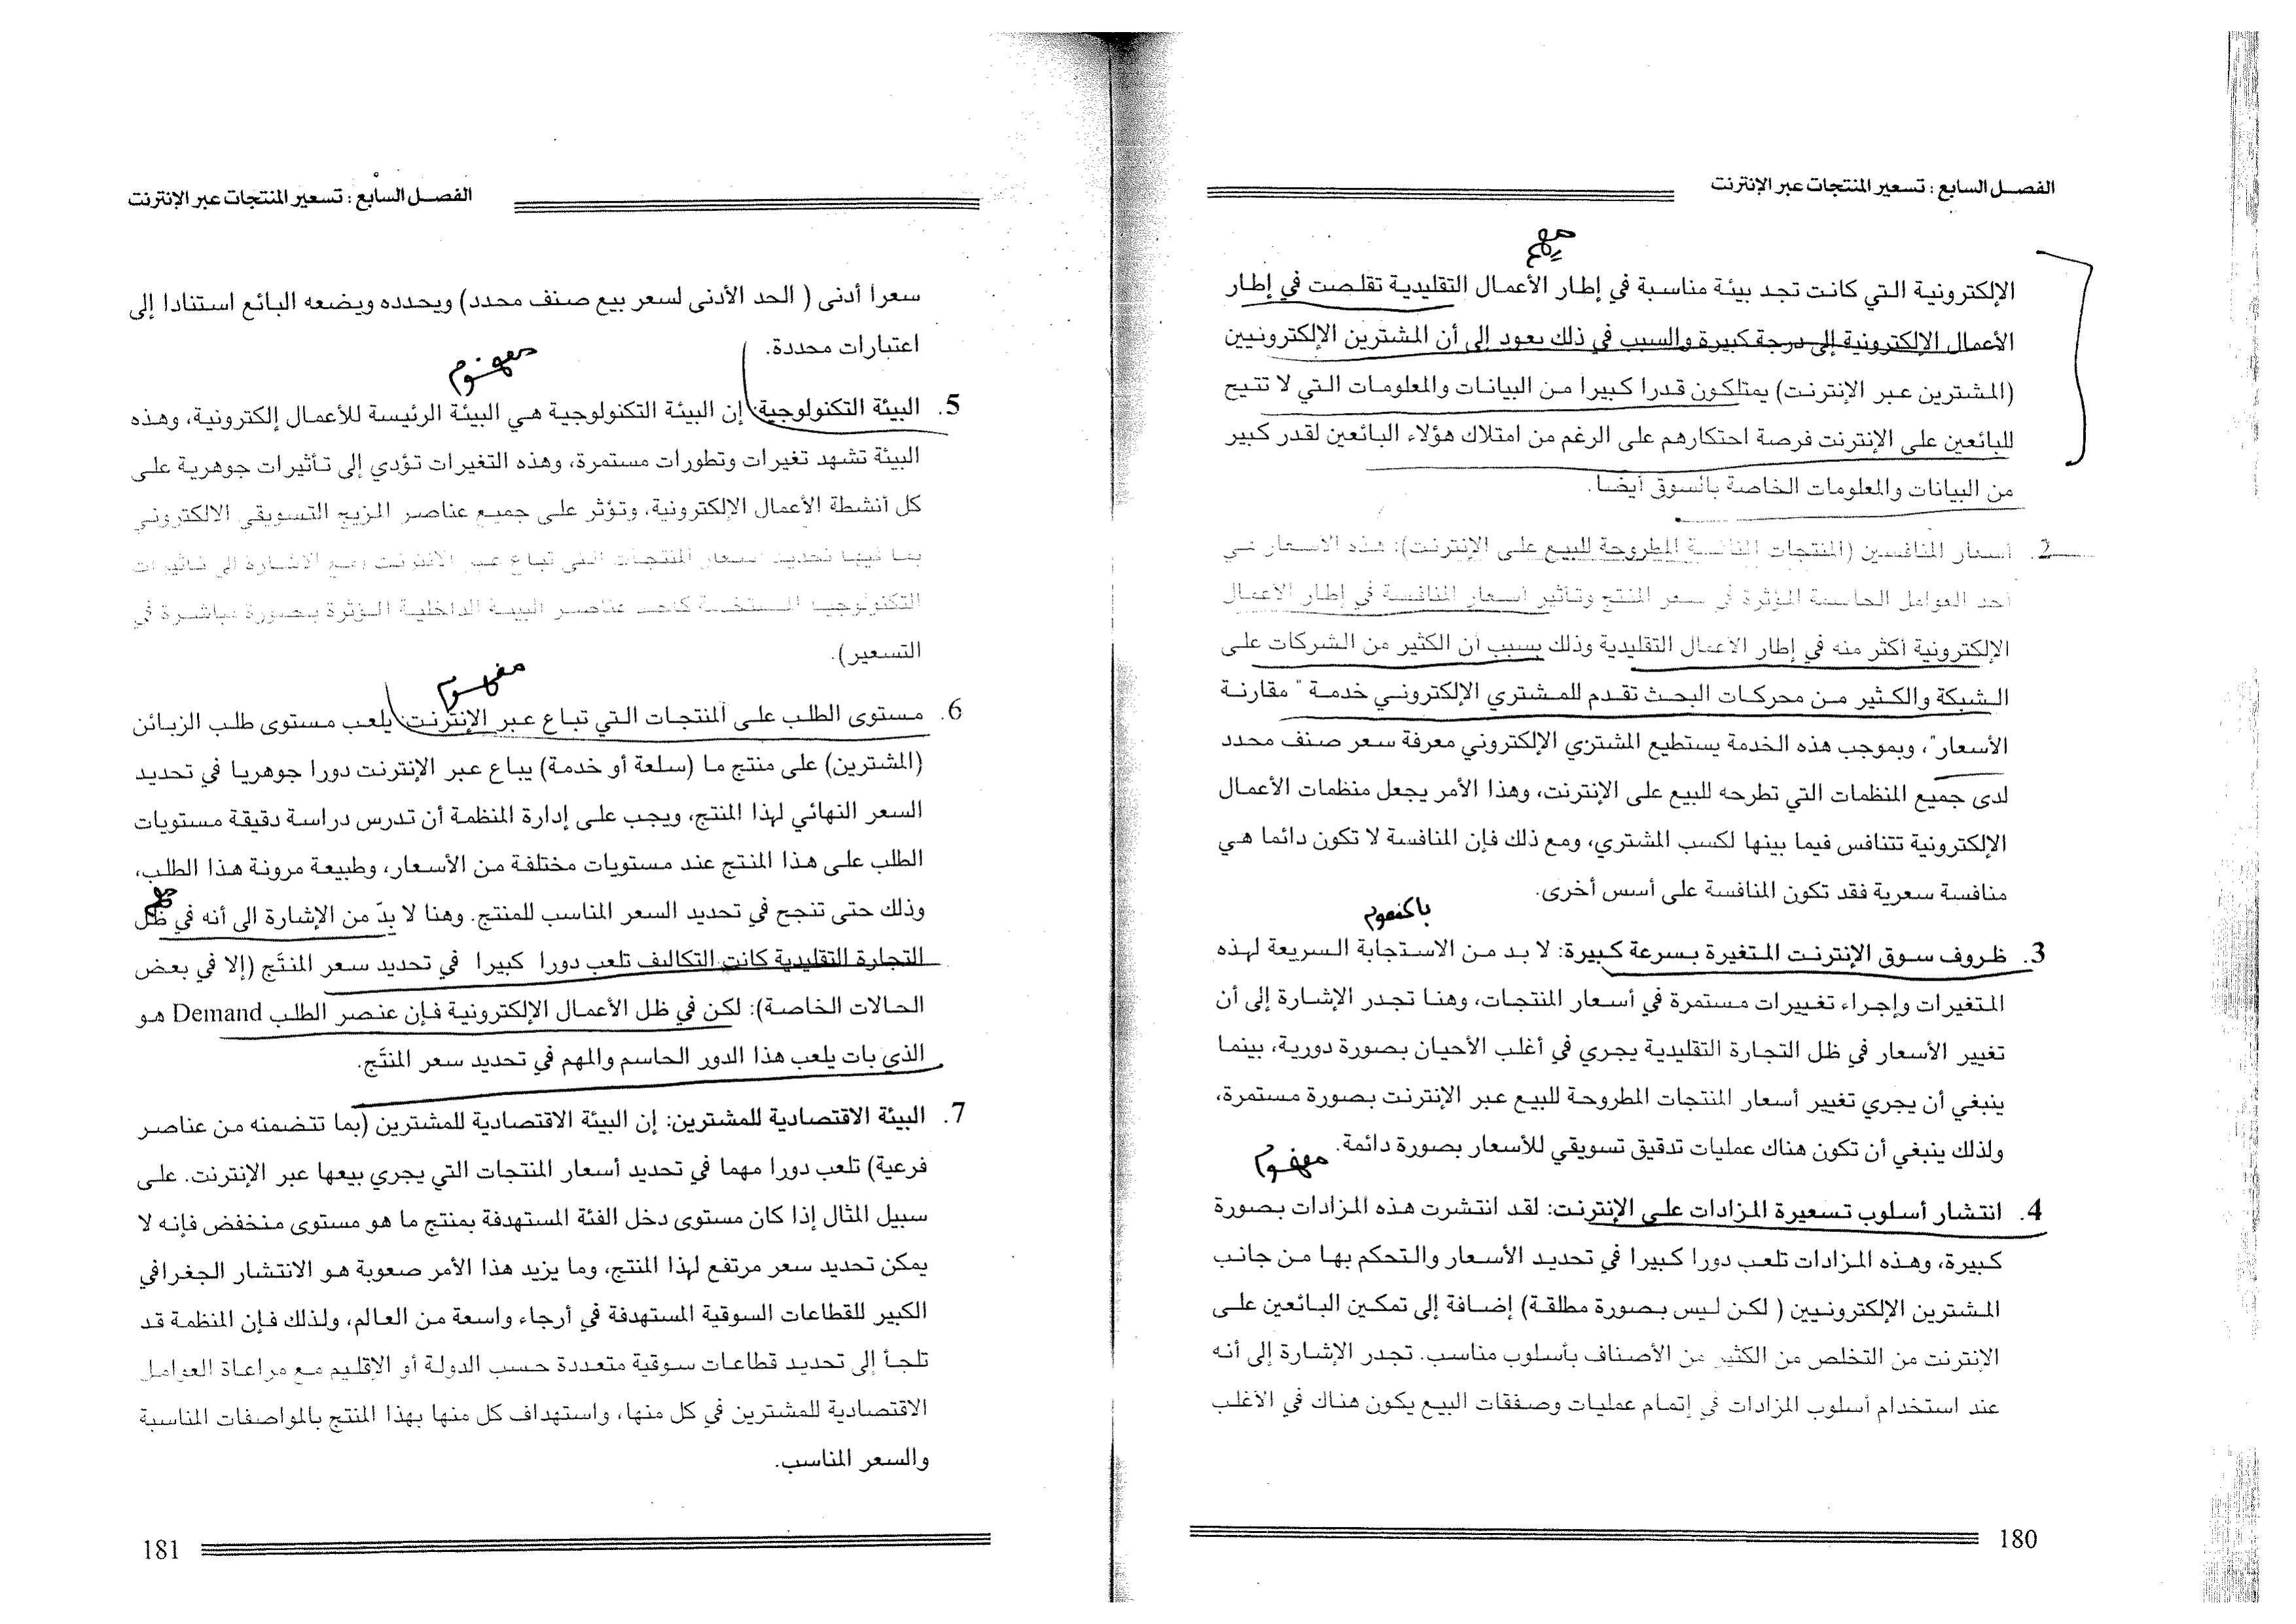 الفصل السابع : تسعير المنتجات عبر الإنترنت
مهم
الإلكترونية التي كانت تجد بيئة مناسبة في إطار الأعمال التقليدية تقلصت في إطار
الأعمال الإلكترونية إلى درجة كبيرة والسبب في ذلك يعود إلى أن المشترين الإلكترونيين
(المشترين عبر الإنترنت) يمتلكون قدرا كبيرا من البيانات والمعلومات التي لا تتيح
للبائعين على الإنترنت فرصة احتكارهم على الرغم من امتلاك هؤلاء البائعين لقدر كبير
من البيانات والمعلومات الخاصة بالسوق أيضا.
2. أسعار المنافسين (المنتجات المنافسة المطروحة للبيع على الإنترنت): هذه الأسعار هي
أحد العوامل الحاسمة المؤثرة في سعر المنتج وتأثير أسعار المنافسة في إطار الأعمال
الإلكترونية أكثر منه في إطار الأعمال التقليدية وذلك بسبب أن الكثير من الشركات على
الشبكة والكثير من محركات البحث تقدم للمشتري الإلكتروني خدمة " مقارنة
الأسعار"، وبموجب هذه الخدمة يستطيع المشتري الإلكتروني معرفة سعر صنف محدد
لدى جميع المنظمات التي تطرحه للبيع على الإنترنت، وهذا الأمر يجعل منظمات الأعمال
الإلكترونية تتنافس فيما بينها لكسب المشتري، ومع ذلك فإن المنافسة لا تكون دائما هي
منافسة سعرية فقد تكون المنافسة على أسس أخرى.
3. ظروف سوق الإنترنت المتغيرة بسرعة كبيرة: لا بد من الاستجابة السريعة لهذه
المتغيرات وإجراء تغييرات مستمرة في أسعار المنتجات، وهنا تجدر الإشارة إلى أن
تغيير الأسعار في ظل التجارة التقليدية يجري في أغلب الأحيان بصورة دورية، بينما
ينبغي أن يجري تغيير أسعار المنتجات المطروحة للبيع عبر الإنترنت بصورة مستمرة،
ولذلك ينبغي أن تكون هناك عمليات تدقيق تسويقي للأسعار بصورة دائمة.
مفهوم
4. انتشار أسلوب تسعيرة المزادات على الإنترنت: لقد انتشرت هذه المزادات بصورة
كبيرة، وهذه المزادات تلعب دورا كبيرا في تحديد الأسعار والتحكم بها من جانب
المشترين الإلكترونيين ( لكن ليس بصورة مطلقة) إضافة إلى تمكين البائعين على
الإنترنت من التخلص من الكثير من الأصناف بأسلوب مناسب. تجدر الإشارة إلى أنه
عند استخدام أسلوب المزادات في إتمام عمليات وصفقات البيع يكون هناك في الأغلب
180
الفصل السابع : تسعير المنتجات عبر الإنترنت
سعرا أدنى ( الحد الأدنى لسعر بيع صنف محدد) ويحدده ويضعه البائع استنادا إلى
اعتبارات محددة.
مفهوم
5. البيئة التكنولوجية: إن البيئة التكنولوجية هي البيئة الرئيسة للأعمال إلكترونية، وهذه
البيئة تشهد تغيرات وتطورات مستمرة، وهذه التغيرات تؤدي إلى تأثيرات جوهرية على
كل أنشطة الأعمال الإلكترونية، وتؤثر على جميع عناصر المزيج التسويقي الالكتروني
بما فيها تحديد أسعار المنتجات التي تباع عبر الانترنت (مع الاشارة الى تأثيرات
التكنولوجيا المستخدمة كأحد عناصر البيئة الداخلية المؤثرة بصورة مباشرة في
التسعير).
مفهوم
6. مستوى الطلب على المنتجات التي تباع عبر الإنترنت: يلعب مستوى طلب الزبائن
(المشترين) على منتج ما (سلعة أو خدمة) يباع عبر الإنترنت دورا جوهريا في تحديد
السعر النهائي لهذا المنتج، ويجب على إدارة المنظمة أن تدرس دراسة دقيقة مستويات
الطلب على هذا المنتج عند مستويات مختلفة من الأسعار، وطبيعة مرونة هذا الطلب،
وذلك حتى تنجح في تحديد السعر المناسب للمنتج. وهنا لا بدّ من الإشارة الى أنه في ظل
التجارة التقليدية كانت التكاليف تلعب دورا كبيرا في تحديد سعر المنتَج (إلا في بعض
الحالات الخاصة): لكن في ظل الأعمال الإلكترونية فإن عنصر الطلب Demand هو
الذي بات يلعب هذا الدور الحاسم والمهم في تحديد سعر المنتَج.
7. البيئة الاقتصادية للمشترين: إن البيئة الاقتصادية للمشترين (بما تتضمنه من عناصر
فرعية) تلعب دورا مهما في تحديد أسعار المنتجات التي يجري بيعها عبر الإنترنت. على
سبيل المثال إذا كان مستوى دخل الفئة المستهدفة بمنتج ما هو مستوى منخفض فإنه لا
يمكن تحديد سعر مرتفع لهذا المنتج، وما يزيد هذا الأمر صعوبة هو الانتشار الجغرافي
الكبير للقطاعات السوقية المستهدفة في أرجاء واسعة من العالم، ولذلك فإن المنظمة قد
تلجأ إلى تحديد قطاعات سوقية متعددة حسب الدولة أو الإقليم مع مراعاة العوامل
الاقتصادية للمشترين في كل منها، واستهداف كل منها بهذا المنتج بالمواصفات المناسبة
والسعر المناسب.
181